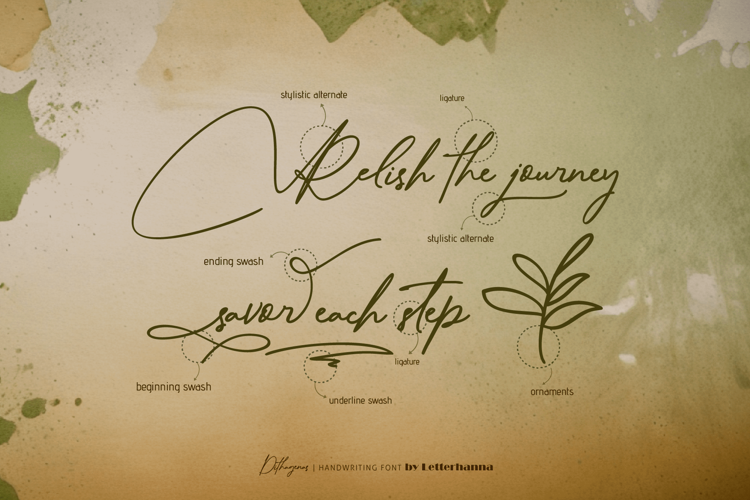 stylistic alternate
ligature
Relish the journey
stylistic alternate
ending swash
savor each step
ligature
beginning swash
underline swash
ornaments
| HANDWRITING FONT by Letterhanna